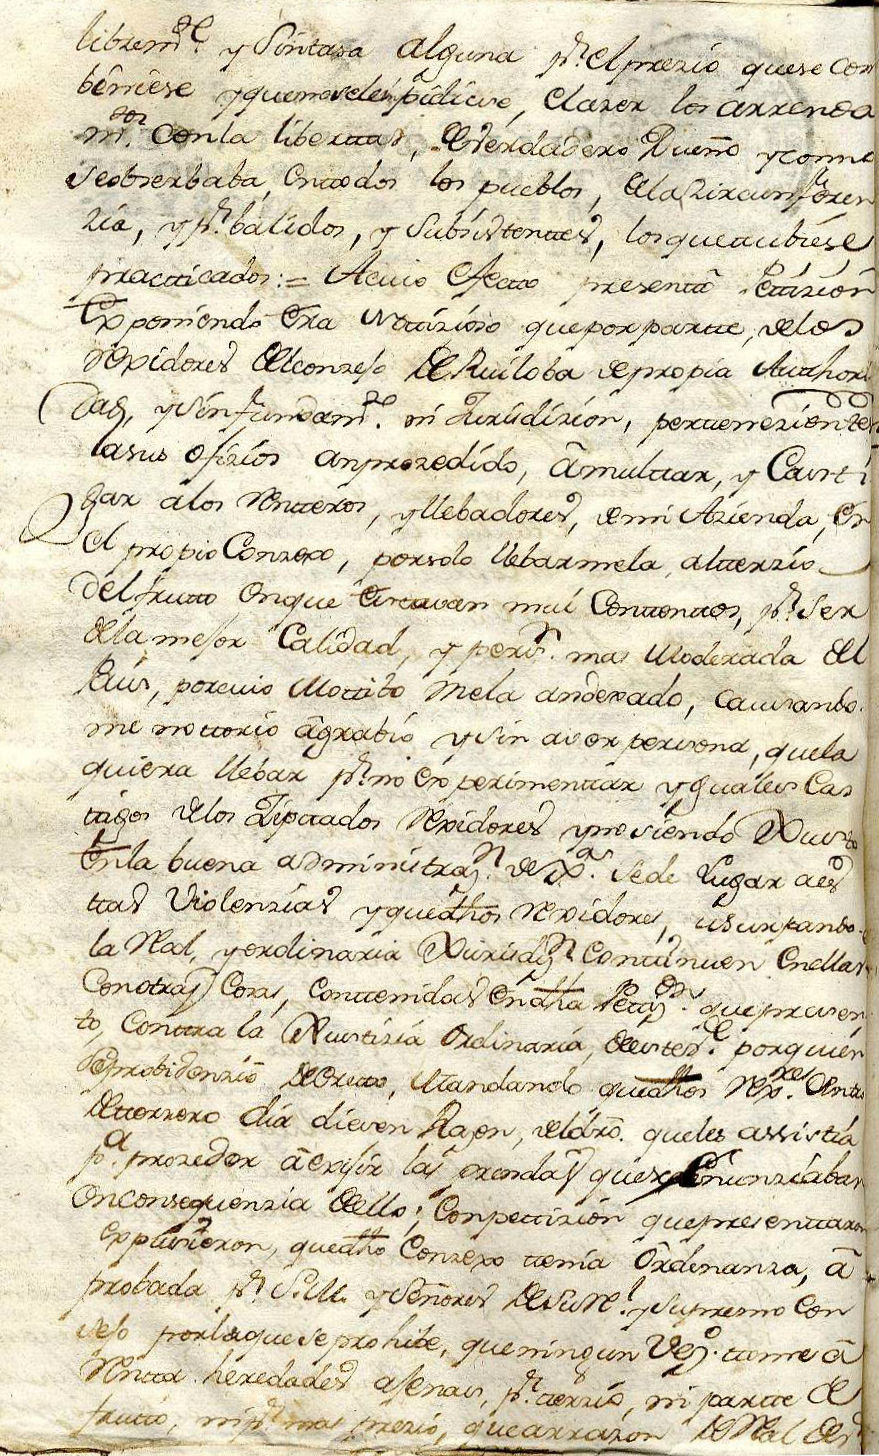 librem.te y sin tasa alguna p.r el prezio que se com
beniese y que no se les pidiese, el azer los arrenda
m.tos con la liberttad, de berdadero Dueño y como
se obserbaba, en ttodos los pueblos, de la Zircunferen
zia, y p.r balidos, y subsistenttes, los que ttubiese
practticados: = A cuio efectto presentto Pettizion
Exponiendo era nottizioso que por partte, de los
Rexidores del conzejo de Ruiloba de propia Authori
dad, y sin fundam.te ni Jurisdizion, pertteneziente
a sus ofizios an prozedido, â multtar, y Casti
gar a los Rentteros, y llebadores, de mi Azienda, en
el propio Conzexo, por solo llebarmela, al terzio
del frutto en que esttavan mui Conttenttos, p.r ser
de la mejor Calidad, y mas Moderada del
Pais, por cuio Mottibo me la an dexado, causando
me nottorio âgrabio y sin aver persona, que la
quiera llebar p.r no experimenttar yguales Cas
tigos de los Zittados Rexidores y no siendo Xusto
en la buena administraz.n de Xª. se de Lugar a es
ttas Violenzias y que dhos Rexidores, usurpando
la Real, y ordinaria Xurisdiz.n Conttinuen en ellas
Con otras Cosas, Conttenidas en dha Pettiz.on que presen
to, Conttra la Xustizia Ordinaria, por quien
se probidenzio Mandando que dhos Rex.res dentro
de tterzero dia diesen Razon, del dro. que les assistia
p.a prozeder â exijir las prendas que se enunziaban
en consequenzia dello; Con pettizion que presenttaron
expusieron, que dho Conzexo ttenia Ordenanza, â
probada p.r S.M. y Señores de su R.l y Supremo Con
sejo por la que se prohibe, que ningun Vez.o ttome â
Rentta heredades ajenas, p.r tterzio, ni partte de
frutto, ni p.r mas prezio, que a rrazon de Real